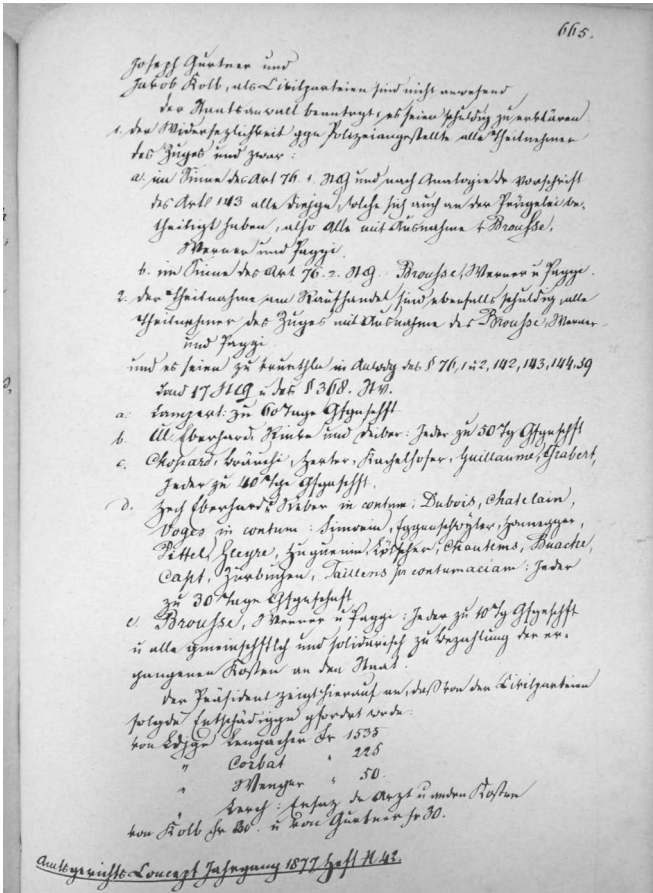 665.
Joseph Gurtner und
Jakob Kolb, als Civilparteien sind nicht anwesend
der Staatsanwalt beantragt, es seien schuldig zu erklären
1. der Widersezlichkeit ggn Polizeiangestellte alle Theilnehmer
des Zuges und zwar:
a. im Sinne des Art 76. 1. StG und nach Analogie de Vorschrift
des Art 143 alle diejge, welche sich auch an der Prügelei be-
theiligt haben, also Alle mit Ausnahme v Brousse,
Werner und Paggi.
b. im Sinne des Art 76. 2. StG. Brousse, Werner u Paggi.
2. der Theilnahme am Raufhandel sind ebenfalls schuldig, alle
Theilnehmer des Zuges mit Ausnahme des Brousse, Werner
und Paggi
und es seien zu in des § 76, 1 u 2, 142, 143, 144, 59
17 StG u des § 368. StV.
a. Lampert: zu 60 Tage Gfgnschft
b. Ul. Eberhard, Rinke und Deiber: Jeder zu 50 Tg Gfgnschft
c. Chopard, Bräuchi, Herter, Kachelhofer, Guillaume, Grabert,
Jeder zu 40 Tge Gfgnschft.
d. Zach Eberhardt, in contum: Dubois, Chatelain,
Voges in contum: Simonin, Eggenschwyler, Honegger,
Pittet, Gleyre, Huguenin, Lötscher, Chautems, Buache,
Capt, Zurbuchen, Taillens in contumaciam: Jeder
zu 30 Tage Gfgnschaft
e. Brousse, Werner u Paggi: Jeder zu 10 Tg Gfgnschft
u alle gmeinschftlch und solidarisch zu Bezahlung der er-
gangenen Kosten an den Staat.
Der Präsident zeigt hierauf an, daß von den Civilparteien
folgde Entschädiggn gfordrt wrde:
von Ldjgr Lengacher Fr 1535
" Corbat " 225
" Wenger " 50.
Lerch: Ersaz de Arzt u andrn Kosten
von Kolb Fr 20. u von Gurtner Fr 30.
Amtsgerichts Concept Jahrgang 1877, Heft N. 42.